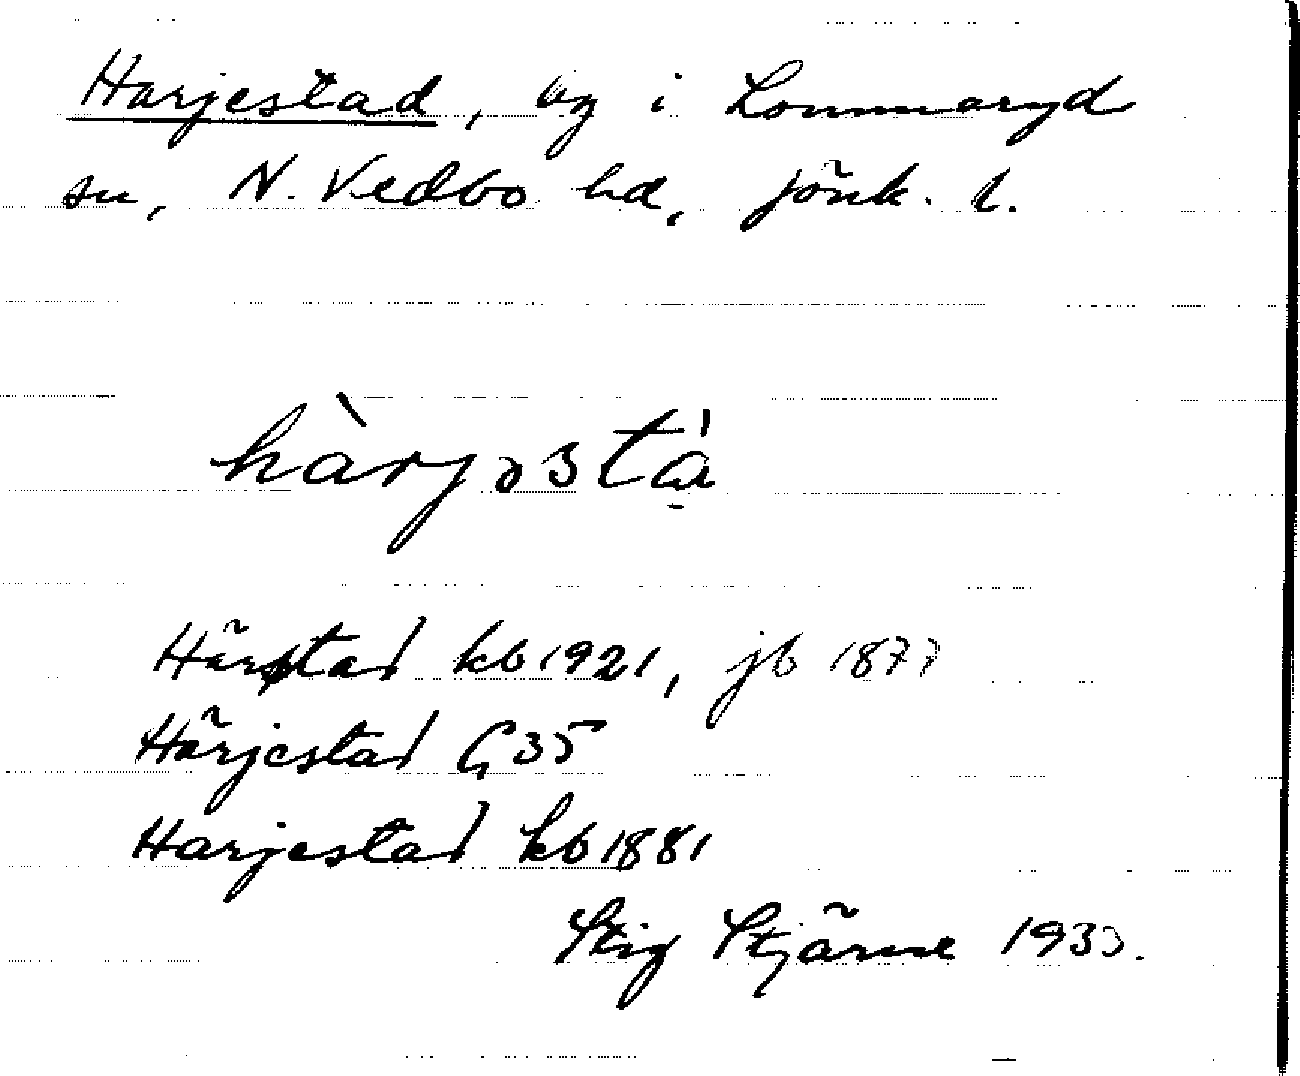 Harjestad, by i Lommaryd
sn, N. Vedbo hd, Jönk. l.
hàrjəstà̱
Härstad kb 1921, jb 1877
Härjestad G 35
Harjestad kb 1881
Stig Stjärne 1933.